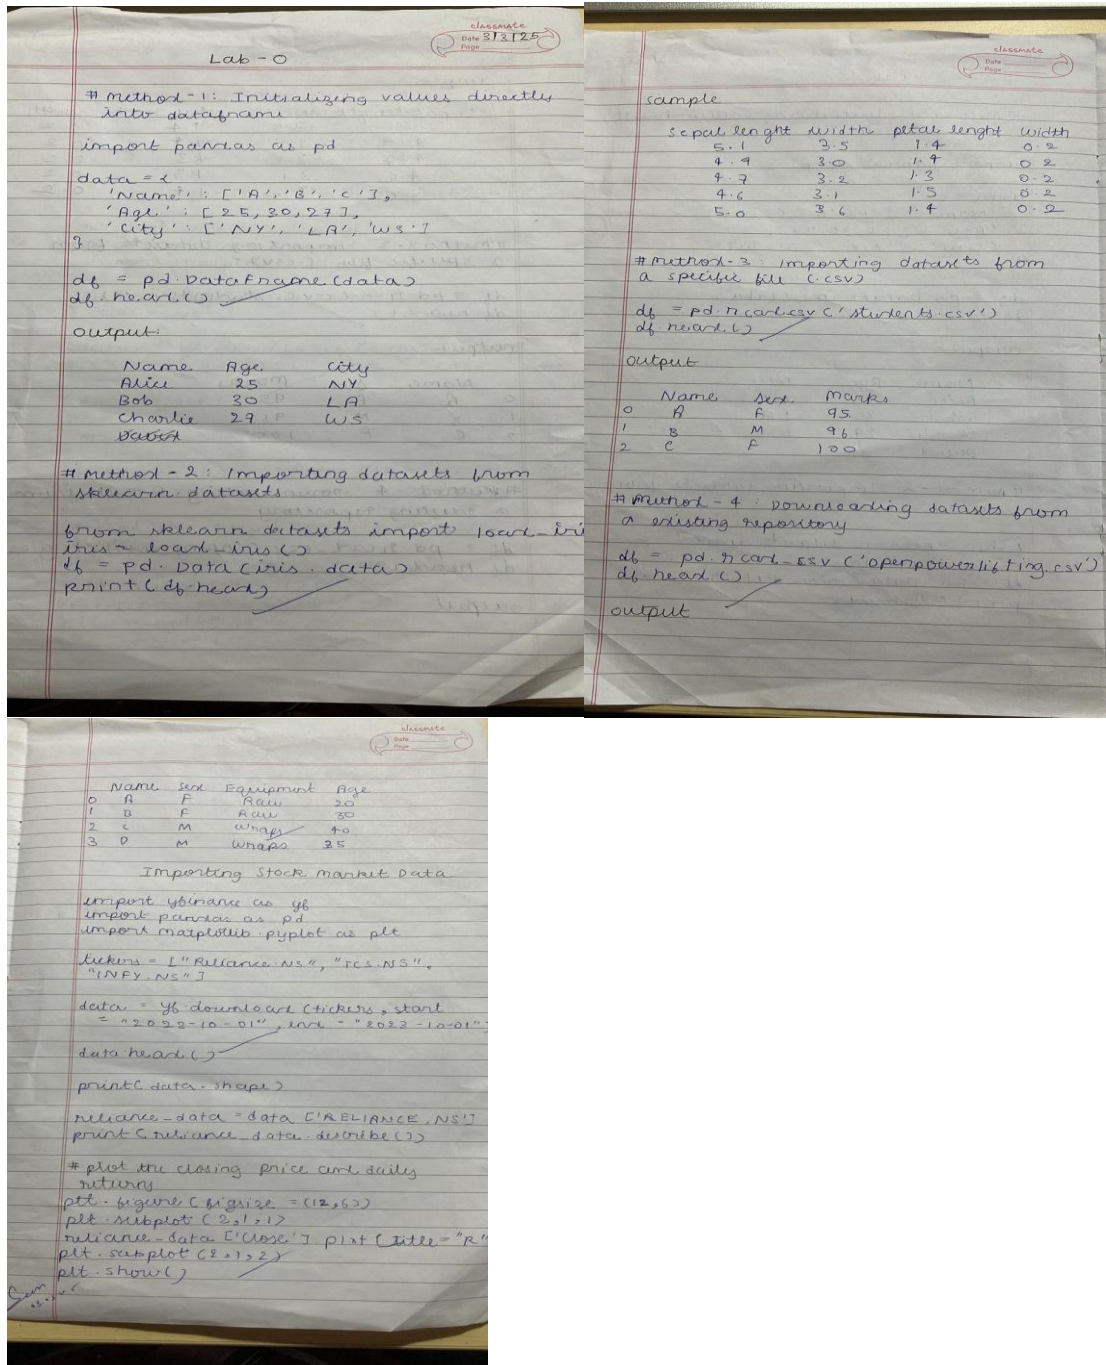 classmate
Date 3/3/25
Page
Lab - 0
# Method-1: Initializing values directly
into dataframe
import pandas as pd
data = {
'Name' : ['A', 'B', 'C'],
'Age' : [25, 30, 27],
'City' : ['NY', 'LA', 'WS']
}
df = pd.DataFrame(data)
df.head()
Output:
Name Age City
Alice 25 NY
Bob 30 LA
Charlie 27 WS
# Method - 2 : Importing datasets from
sklearn.datasets
from sklearn datasets import load_iri
iris = load_iris()
df = pd.Data(iris.data)
print(df.head)
classmate
Date
Page
sample
sepal lenght width petal lenght width
5.1 3.5 1.4 0.2
4.9 3.0 1.4 0.2
4.7 3.2 1.3 0.2
4.6 3.1 1.5 0.2
5.0 3.6 1.4 0.2
# Method-3 : Importing datasets from
a specific file (.csv)
df = pd.read.csv('students.csv')
df.head()
Output
Name Sex Marks
0 A F 95
1 B M 96
2 C F 100
# Method - 4 : Downloading datasets from
a existing repository
df = pd.read_csv ('openpowerlifting.csv')
df.head()
Output
classmate
Date
Page
Name Sex Equipment Age
0 A F Raw 20
1 B F Raw 30
2 C M Wraps 40
3 D M Wraps 35
Importing Stock Market Data
import yfinance as yf
import pandas as pd
import matplotlib.pyplot as plt
tickers = ["Reliance.NS", "TCS.NS",
"INFY.NS"]
data = yf.download(tickers, start
= "2022-10-01", end = "2023-10-01"
data.head()
print(data.shape)
reliance_data = data ['RELIANCE.NS']
print(reliance_data.describe())
# plot the closing price and daily
returns
plt.figure(figsize =(12,6))
plt.subplot(2,1,1)
reliance_data ['Close'] plot (title="R"
plt.subplot(2,1,2)
plt.show()